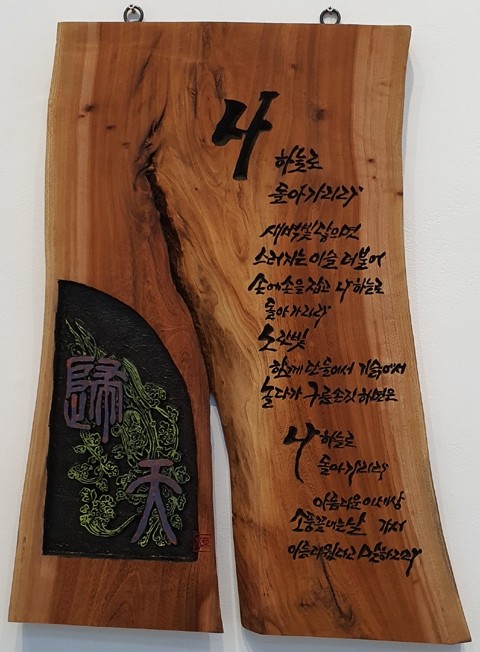 나 하늘로
돌아가리라
새벽빛 닿으면
스러지는 이슬 더불어
손에 손을 잡고 나 하늘로
돌아가리라
노을빛
함께 단 둘이서 기슭에서
놀다가 구름손짓 하면은
나 하늘로
돌아가리라
아름다운 이 세상
소풍 끝내는 날 가서
아름다웠더고 말하리라
歸
天